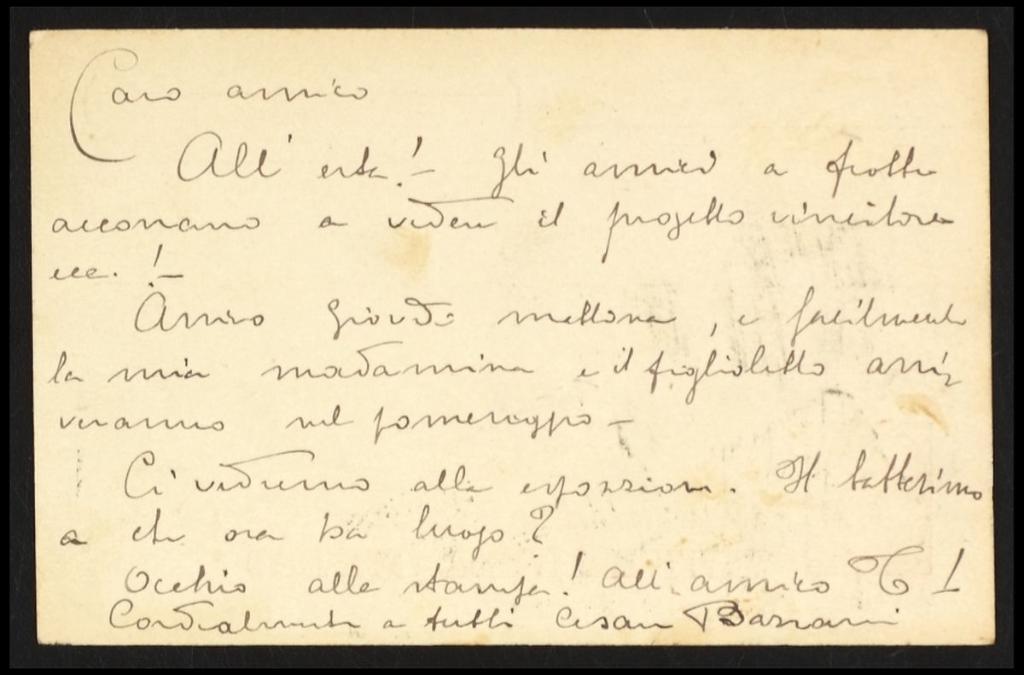 Caro amico
All' erta! – Gli amici a frotte
accorrano a vedere il progetto vincitore
ecc. ! –
Arrivo Giovedi mattina, e facilmente
la mia madamina e il figlioletto arri=
veranno nel pomeriggio –
Ci vedremo alla esposizione. Il battesimo
a che ora ha luogo?
Occhio alla stampa! All' amico T !
Cordialmente a tutti Cesare Bazzani